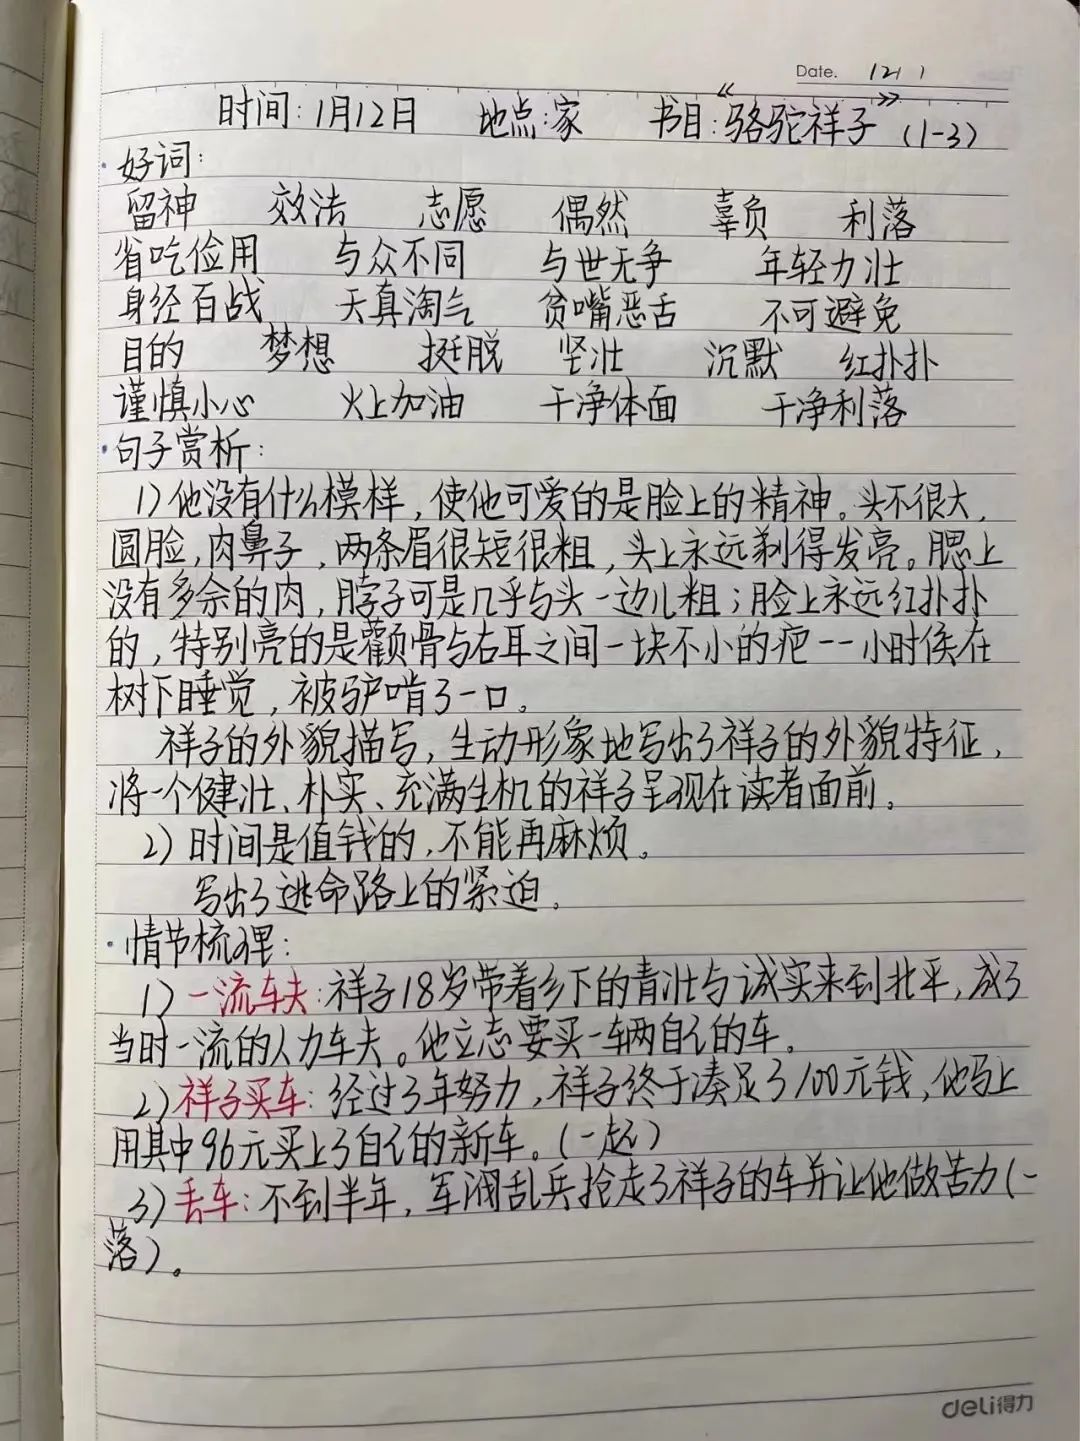 Date. 121 )
时间:1月12日 地点:家 书目:《骆驼祥子》(1-3)
·好词:
留神 效法 志愿 偶然 辜负 利落
省吃俭用 与众不同 与世无争 年轻力壮
身经百战 天真淘气 贫嘴恶舌 不可避免
目的 梦想 挺脱 坚壮 沉默 红扑扑
谨慎小心 火上加油 干净体面 干净利落
·句子赏析:
1)他没有什么模样,使他可爱的是脸上的精神。头不很大,
圆脸,肉鼻子,两条眉很短很粗,头上永远剃得发亮。腮上
没有多余的肉,脖子可是几乎与头一边儿粗;脸上永远红扑扑
的,特别亮的是颧骨与右耳之间一块不小的疤——小时候在
树下睡觉,被驴啃了一口。
祥子的外貌描写,生动形象地写出了祥子的外貌特征,
将一个健壮、朴实、充满生机的祥子呈现在读者面前。
2)时间是值钱的,不能再麻烦。
写出了逃命路上的紧迫。
·情节梳理:
1)一流车夫:祥子18岁带着乡下的青壮与诚实来到北平,成了
当时一流的人力车夫。他立志要买一辆自己的车。
2)祥子买车:经过3年努力,祥子终于凑足了100元钱,他马上
用其中96元买上了自己的新车。(一起)
3)丢车:不到半年,军阀乱兵抢走了祥子的车并让他做苦力(一
落)。
deli得力